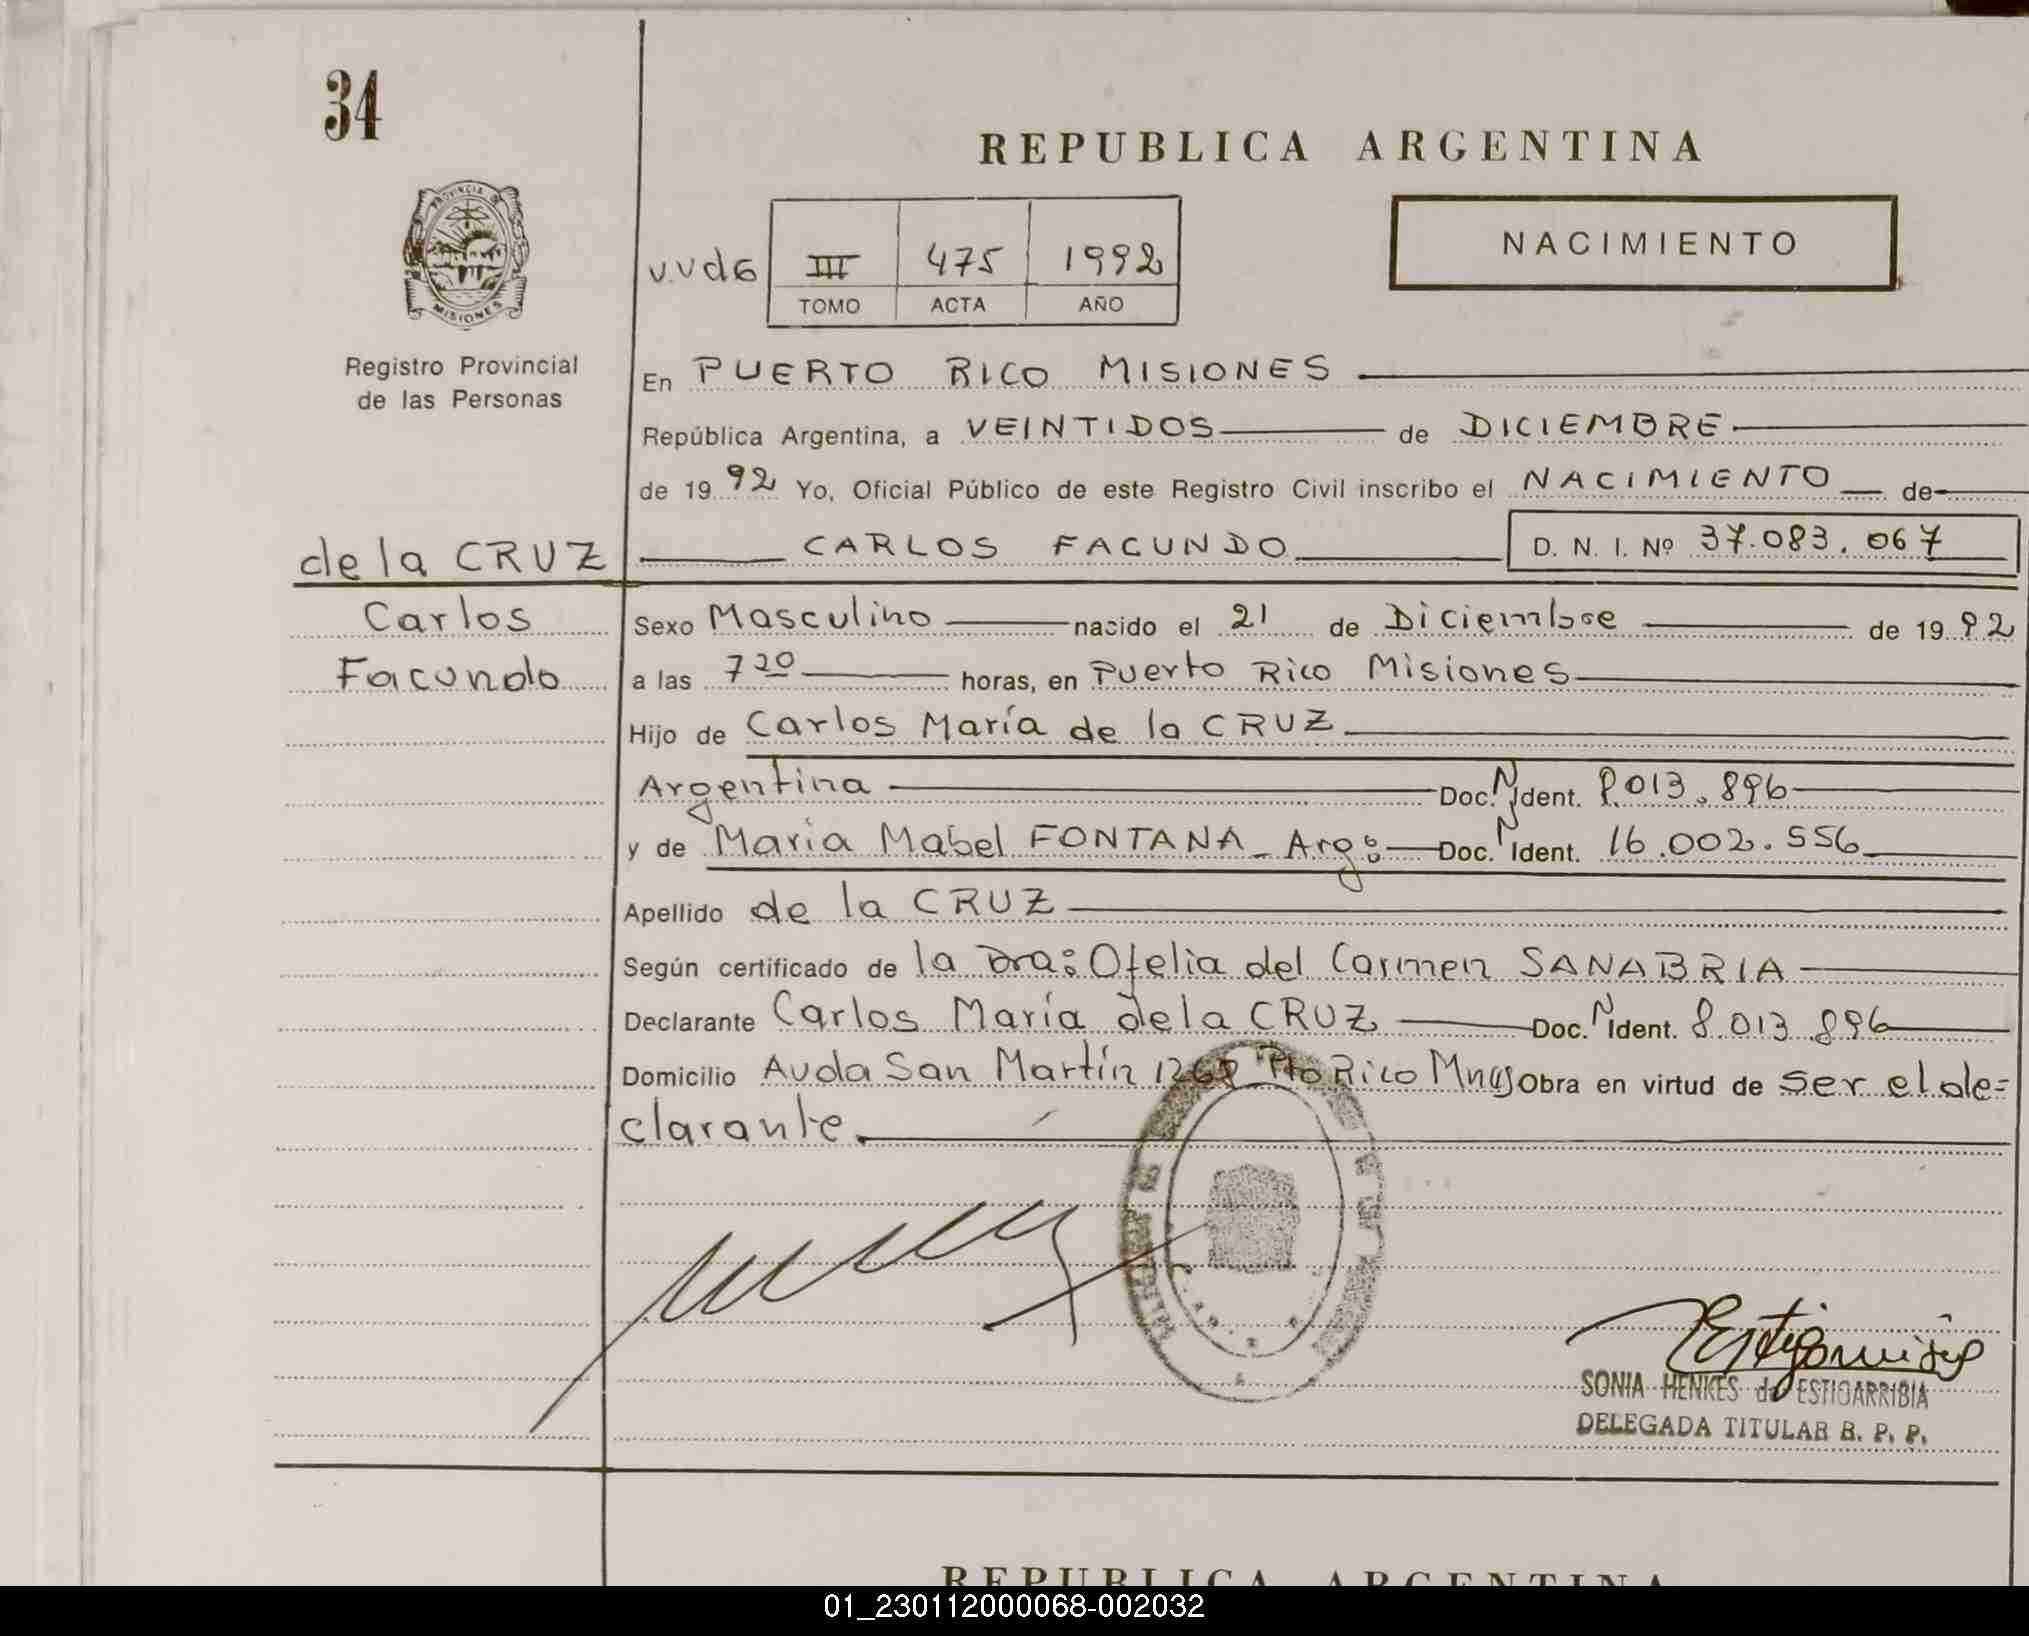 34
REPUBLICA ARGENTINA
PROVINCIA DE
MISIONES
NACIMIENTO
III 475 1992
TOMO ACTA AÑO
Registro Provincial
de las Personas
En PUERTO RICO MISIONES
República Argentina, a VEINTIDOS de DICIEMBRE
de 1992 Yo, Oficial Público de este Registro Civil inscribo el NACIMIENTO de
de la CRUZ CARLOS FACUNDO D. N. I. Nº 37.083.067
Carlos Sexo Masculino nacido el 21 de Diciembre de 1992
Facundo a las 7 20 horas, en Puerto Rico Misiones
Hijo de Carlos María de la CRUZ
Argentina Doc. N Ident. 8.013.896
y de Maria Mabel FONTANA Arg: Doc. N Ident. 16.002.556
Apellido de la CRUZ
Según certificado de la Dra: Ofelia del Carmen SANABRIA
Declarante Carlos María de la CRUZ Doc. N Ident. 8.013.896
Domicilio Avda San Martín Pto Rico Mnes Obra en virtud de ser el de=
clarante.
SONIA HENKES de ESTIGARRIBIA
DELEGADA TITULAR R. P. P.
REPUBLICA ARGENTINA
01_230112000068-002032